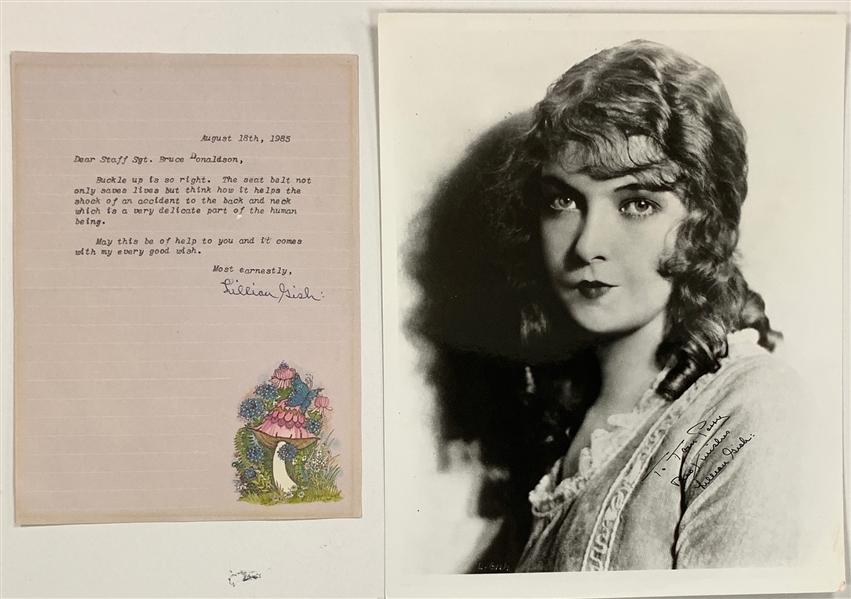 August 18th, 1985
Dear Staff Sgt. Bruce Donaldson,
Buckle up is so right. The seat belt not
only saves lives but think how it helps the
shock of an accident to the back and neck
which is a very delicate part of the human
being.
May this be of help to you and it comes
with my every good wish.
Most earnestly,
Lillian Gish:
To
Best wishes
Lillian Gish:
L. Gish